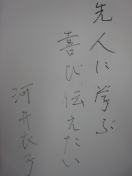 先人に学ぶ
喜び伝えたい
河井衣